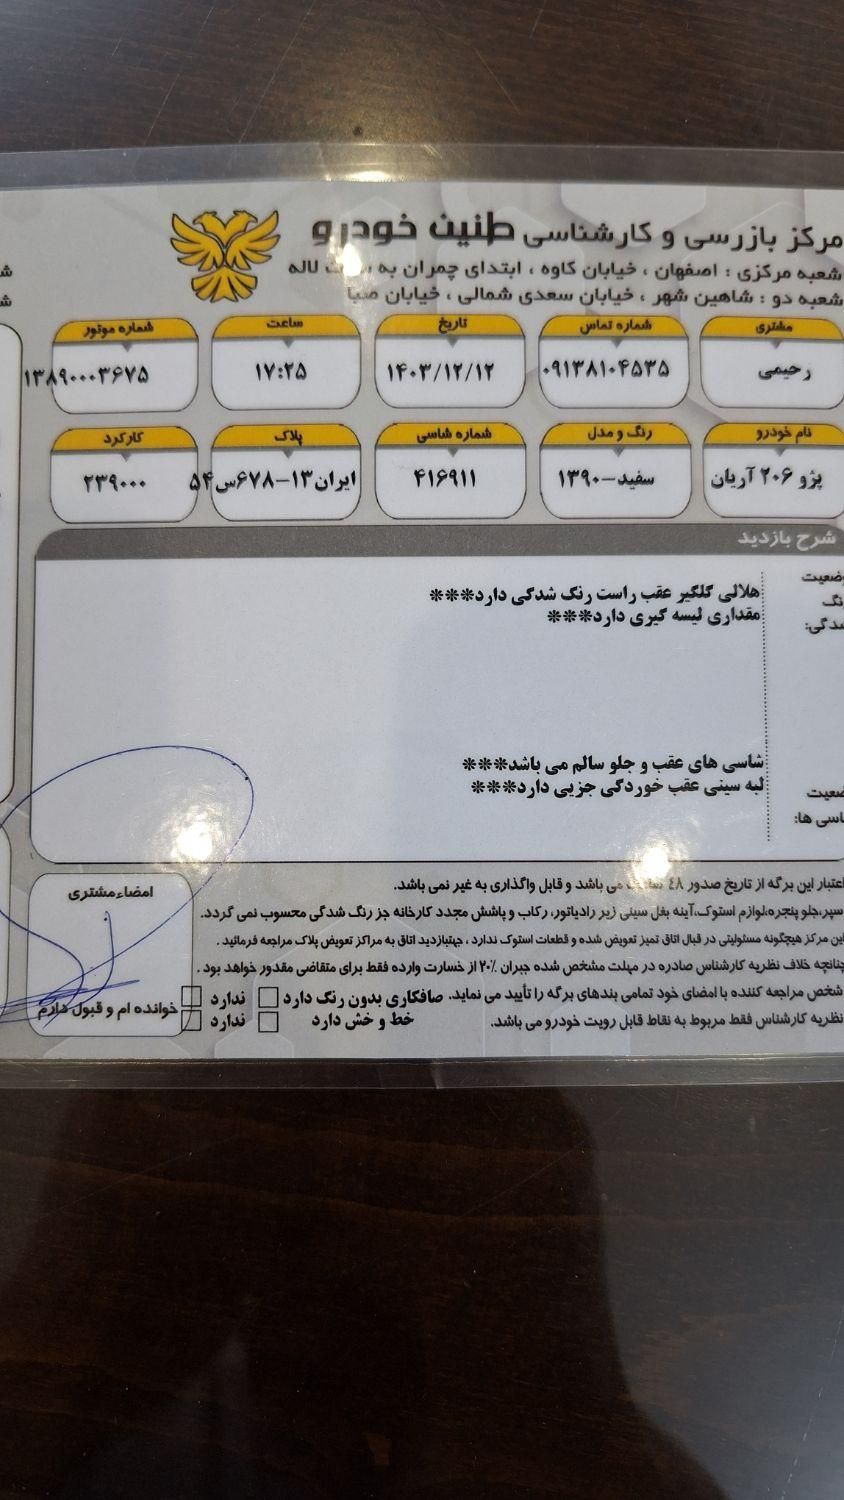 مرکز بازرسی و کارشناسی طنین خودرو
شعبه مرکزی : اصفهان ، خیابان کاوه ، ابتدای چمران به سمت لاله
شعبه دو : شاهین شهر ، خیابان سعدی شمالی ، خیابان صبا
مشتری شماره تماس تاریخ ساعت شماره موتور
رحیمی ۰۹۱۳۸۱۰۴۵۳۵ ۱۴۰۳/۱۲/۱۲ ۱۷:۲۵ ۱۳۸۹۰۰۰۳۶۷۵
نام خودرو رنگ و مدل شماره شاسی پلاک کارکرد
پژو ۲۰۶ آریان سفید-۱۳۹۰ ۴۱۶۹۱۱ ایران۱۳-۶۷۸س۵۴ ۲۳۹۰۰۰
شرح بازدید
وضعیت
رنگ
شدگی:
هلالی گلگیر عقب راست رنگ شدگی دارد***
مقداری لیسه گیری دارد***
شاسی های عقب و جلو سالم می باشد***
لبه سینی عقب خوردگی جزیی دارد***
وضعیت
شاسی ها:
اعتبار این برگه از تاریخ صدور ۴۸ ساعت می باشد و قابل واگذاری به غیر نمی باشد.
سپر،جلو پنجره،لوازم استوک،آینه بغل سینی زیر رادیاتور، رکاب و پاشش مجدد کارخانه جز رنگ شدگی محسوب نمی گردد.
این مرکز هیچگونه مسئولیتی در قبال اتاق تمیز تعویض شده و قطعات استوک ندارد ، جهتبازدید اتاق به مراکز تعویض پلاک مراجعه فرمائید .
چنانچه خلاف نظریه کارشناس صادره در مهلت مشخص شده جبران ۲۰٪ از خسارت وارده فقط برای متقاضی مقدور خواهد بود .
شخص مراجعه کننده با امضای خود تمامی بندهای برگه را تأیید می نماید. صافکاری بدون رنگ دارد ندارد
نظریه کارشناس فقط مربوط به نقاط قابل رویت خودرو می باشد. خط و خش دارد ندارد
امضاء مشتری
خوانده ام و قبول دارم